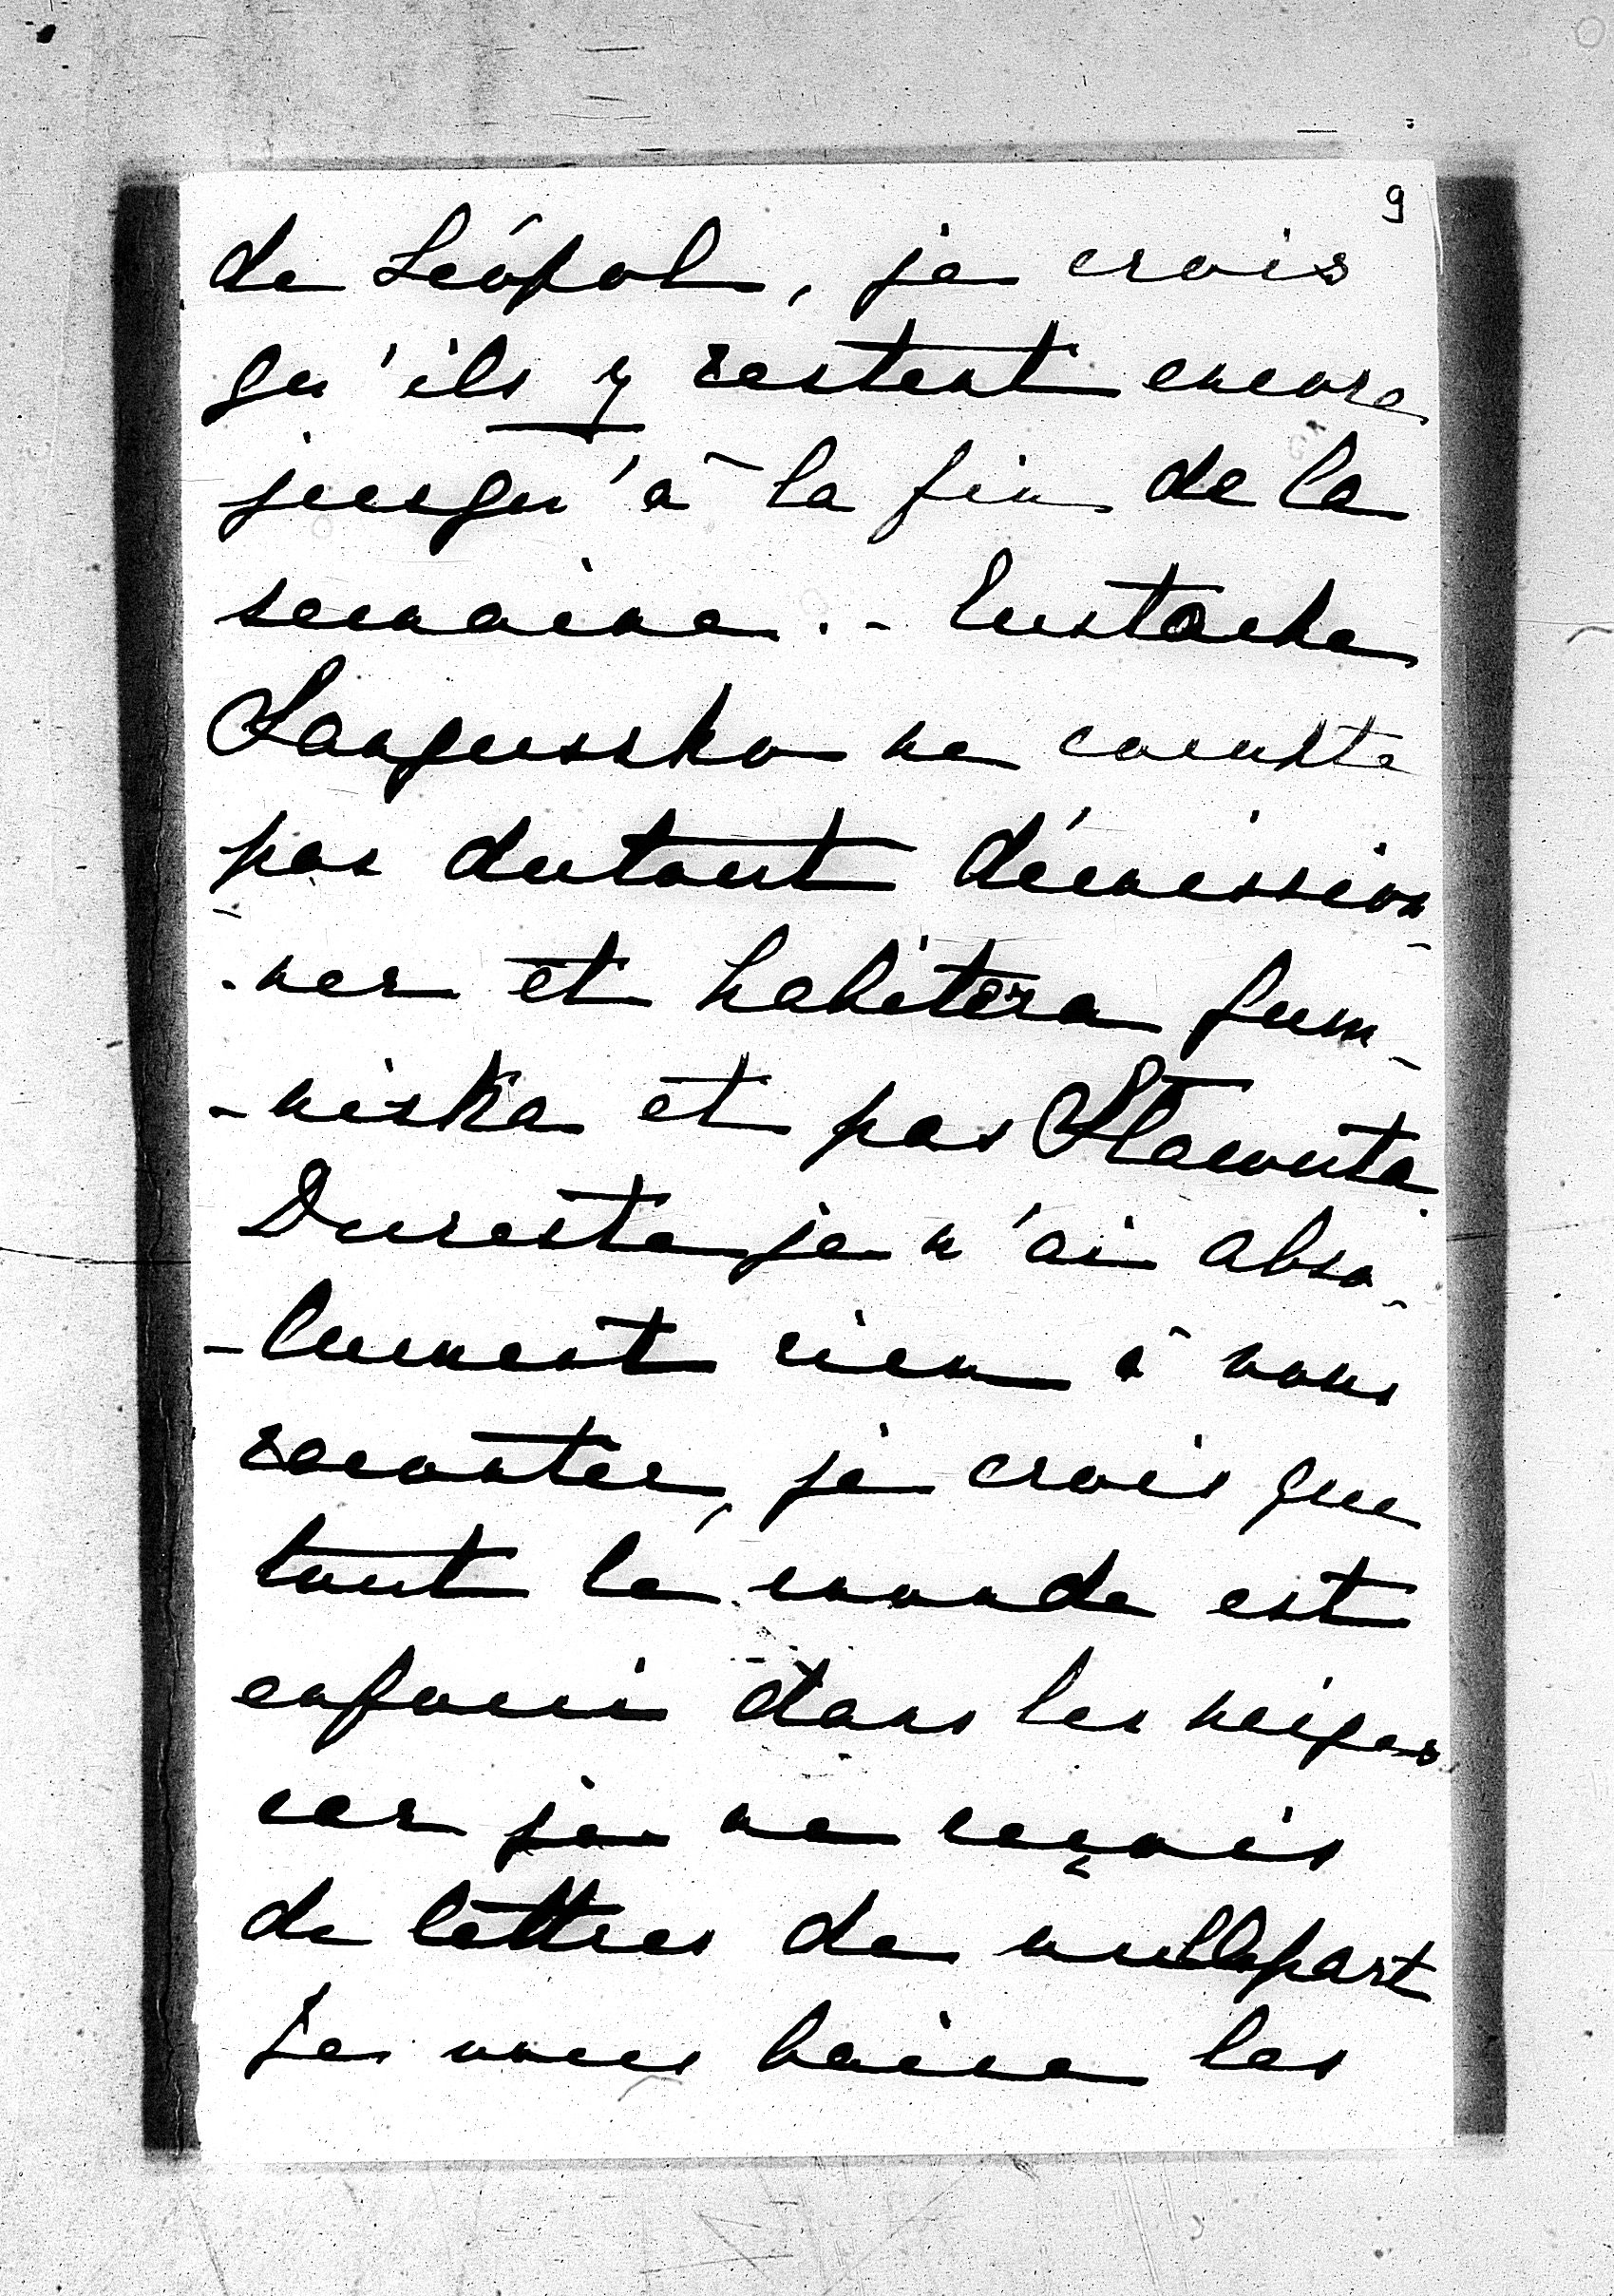 9
de Léopol, je crois
qu'ils y restent encore
jusqu'à la fin de la
semaine. - Eustache
Sanguszko ne compte
pas dutout démission-
-ner et habitera Gum-
-niska et pas Slawuta.
Dureste je n'ai abso-
-lument rien à vous
raconter, je crois que
tout le monde est
enfoui dans les neiges
car je ne reçois
de lettres de nullepart
Je vous baise les